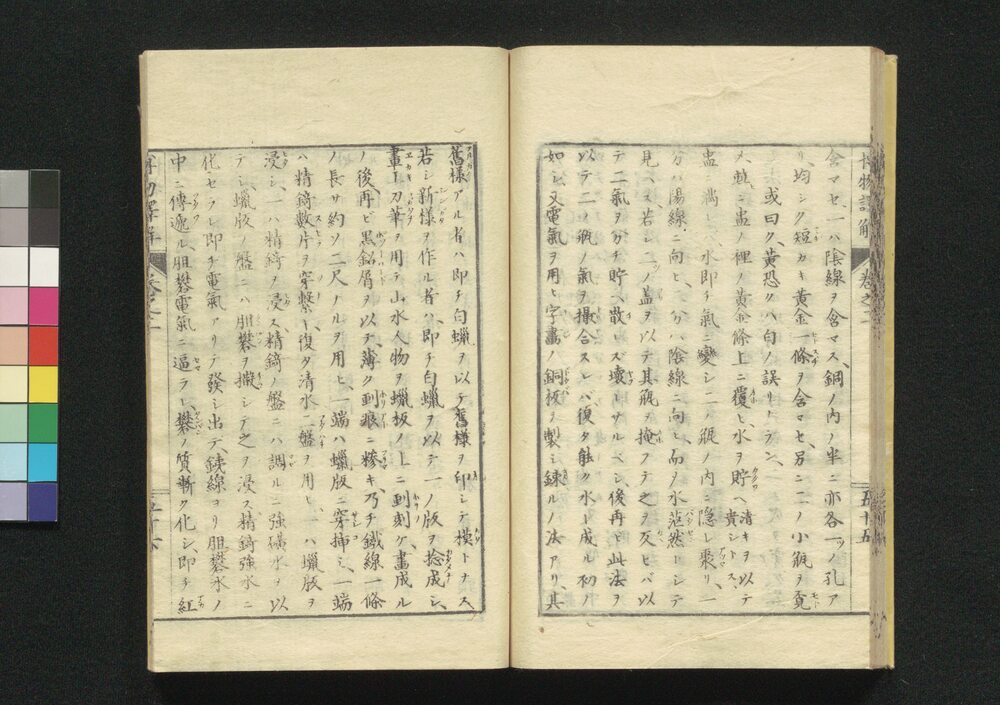 博物譯解
卷之二
五十五
含マセ、一ハ陰線ヲ含マス、銅ノ内ノ半ニ亦各一ツノ孔ア
リ、均シク短カキ黄金一條ヲ含マセ、另ニ二ノ小瓶ヲ覓
メ或曰ク、黄恐クハ白ノ誤リナラン、
大乾ニ盅ノ裡ノ黄金條上ニ覆ヒ、水ヲ貯ヘ清キヲ以テ貴シトス、
盅ニ満レハ、水即チ氣ニ變シ二ノ瓶ノ内ニ隠レ聚リ、一
分ハ陽線ニ向ヒ、一分ハ陰線ニ向ヒ而ヲ水茫然トシテ
見ヘス若シ二ノ蓋ヲ以テ其瓶ヲ掩フテ之ヲ反ヒバ以
テ二氣ヲ分チ貯ヘ散セズ壊レサルベシ後再ビ此法ヲ
以テ二ノ瓶ノ氣ヲ攝合スレバ復タ融ケ水ト成ル初ノ
如シ、又電氣ヲ用ヒ字畫ノ銅板ヲ製シ錬ルノ法アリ、其
舊様アル者ハ即チ白蠟ヲ以テ舊様ヲ印シテ模トナス
若シ新様ヲ作ル者ハ即チ白蠟ヲ以テ一ノ版ヲ捻成シ、
畫工刀筆ヲ用テ山水人物ヲ蠟板ノ上ニ刻ケ、畫成ル
ノ後、再ビ黒鉛屑ヲ以テ薄ク刻痕ニ糝キ乃チ鐵線一條
ノ長サ約ソ二尺ノルヲ用ヒ、一端ハ蠟版ニ穿挿シ、一端
ハ精錡數片ヲ穿繋キ、復タ清水一盤ヲ用ヒ、一ハ蠟版ヲ
浸シ、一ハ精錡ヲ浸ス、精錡ノ盤ニハ調ルニ強磺水ヲ以
テシ、蠟版ノ盤ニハ胆礬ヲ攙シテ之ヲ浸ス精錡強水ニ
化セラレ即チ電氣アリテ發シ出テ、鉄線ヨリ胆礬水ノ
中ニ傳逓ル、胆礬電氣ニ逼ラレ、礬ノ質漸ク化シ、即チ紅
博物譯解
卷之二
五十六